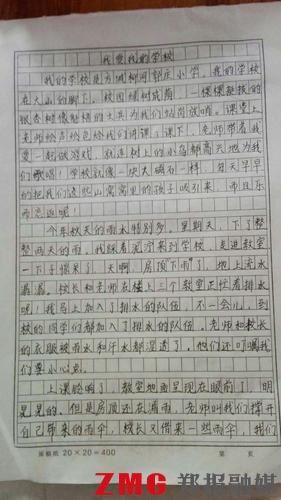 我爱我的学校
我的学校是方城柳河郭庄小学。我的学校
在大山的脚下。校园绿树成荫，一棵棵挺拔的
银杏树像魁梧的士兵为我们站岗放哨。课堂上
老师绘声绘色给我们讲课，课下，老师带着我
爱一起做游戏，就连树上的小鸟都高兴地为我
们歌唱！学校就像一块大磁石一样，每天早早
的把我们这些山窝窝里的孩子吸引来，而且乐
而忘返呢！
今年秋天的雨水特别多。星期天，下了整
整两天的雨。我踩着泥泞来到学校，走进教室
一下子惊呆了，天啊，房顶下雨了，地上流水
潺潺。校长和老师在楼上三个教室正忙着排水
呢！我马上加入了排水的队伍，不一会儿，到
校的同学们都加入了排水的队伍。老师和校长
的衣服被雨水和汗水都湿透了，他们还叮嘱我
们要小心点。
上课铃响了，教室地面呈现在眼前了，明
晃晃的。但是房顶还在滴雨，老师叫我们撑开
自己带来的雨伞，校长又借来一些雨伞，我们
原稿纸 20×20=400 第 页
ZMG 郑报融媒